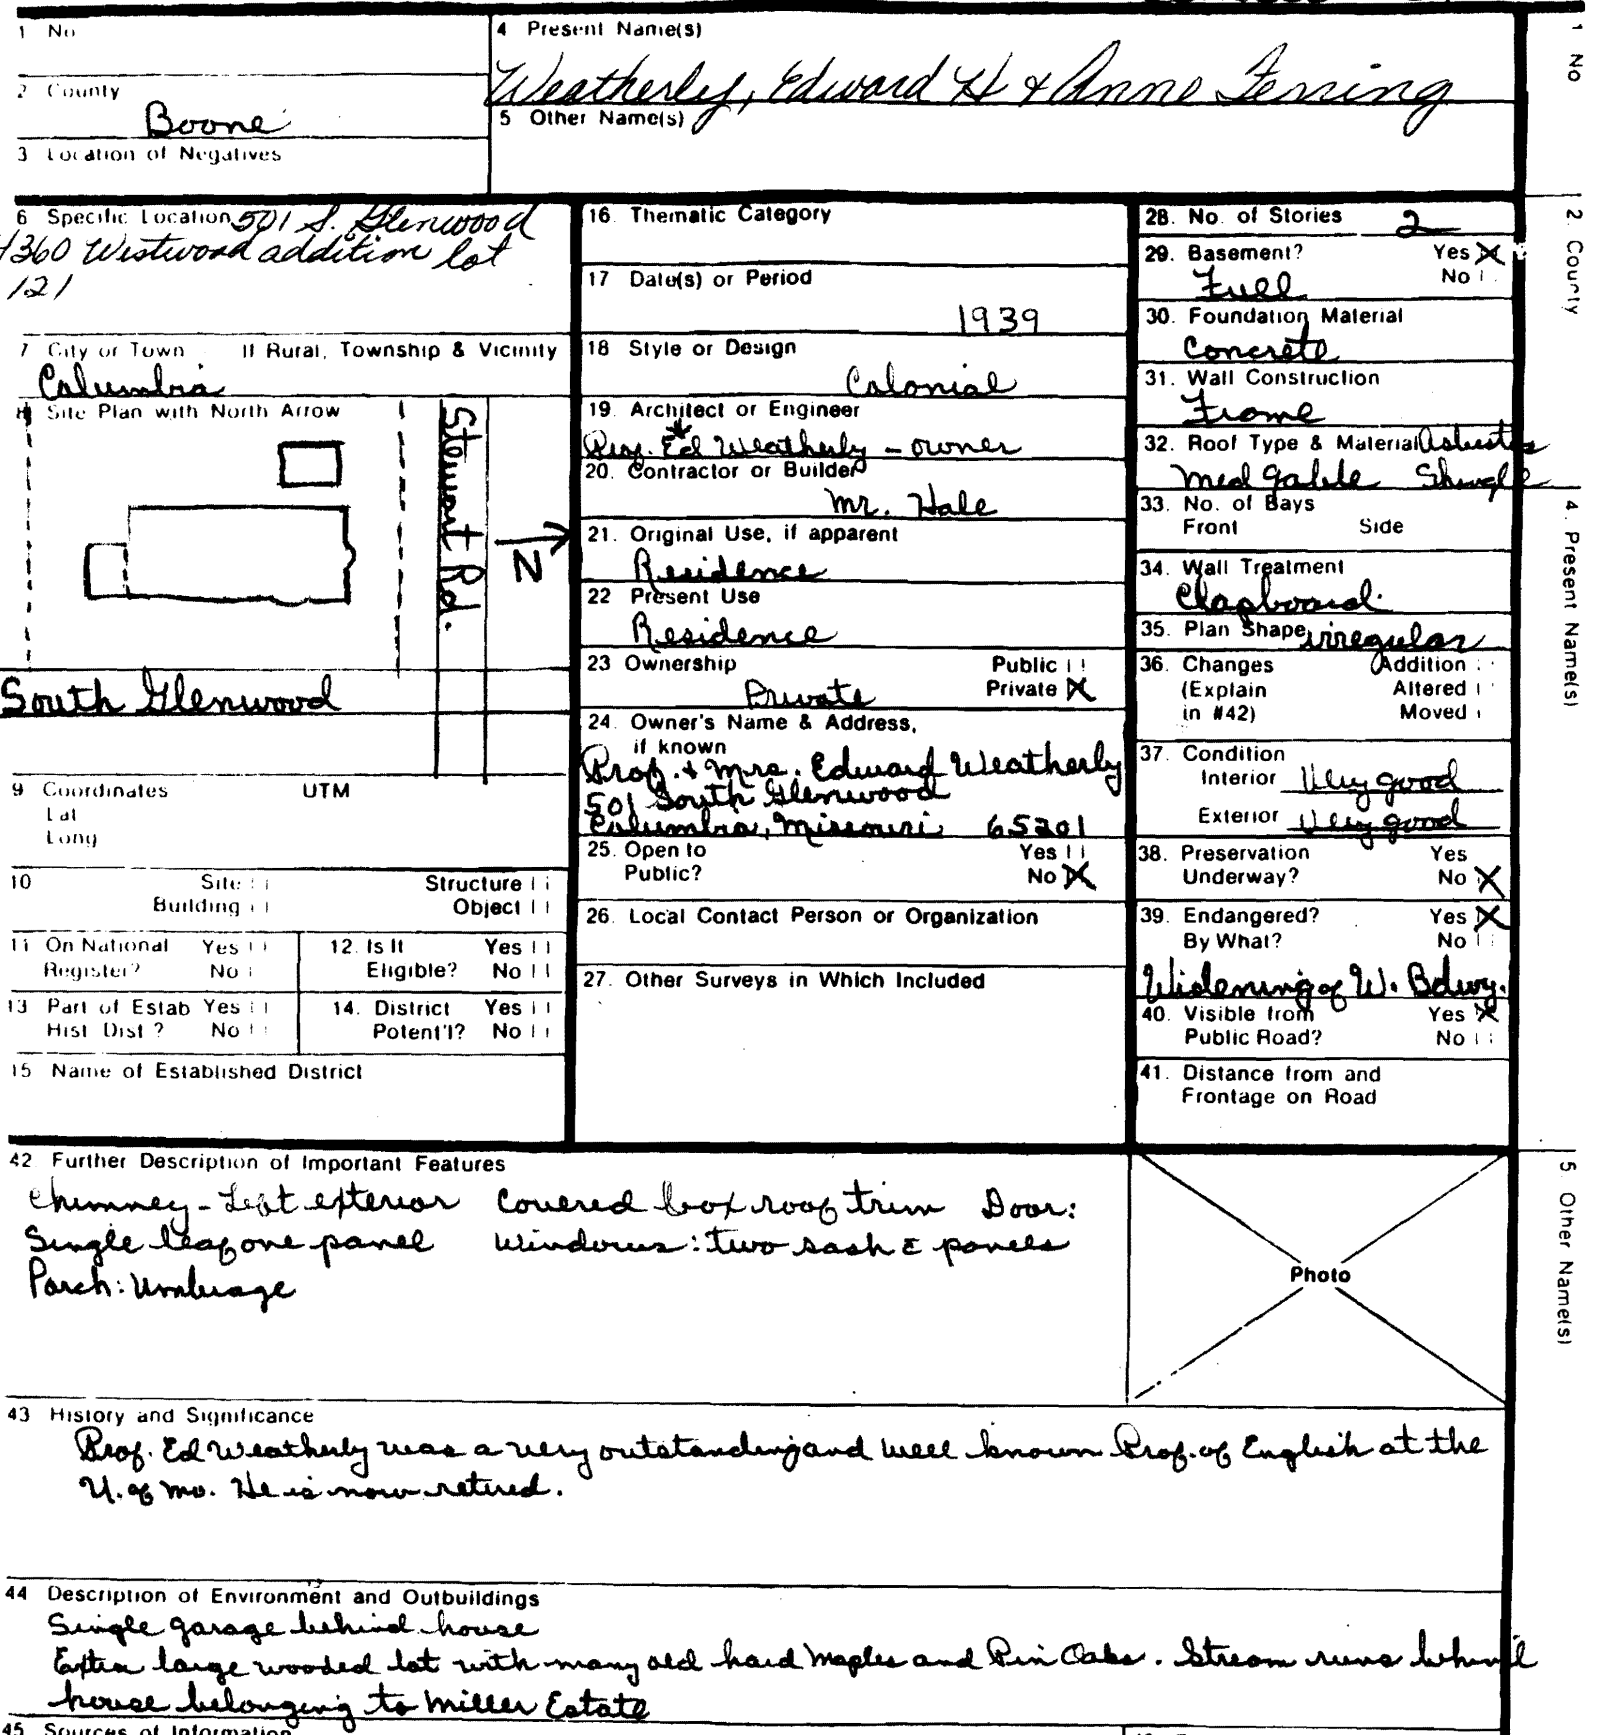 1 No
4 Present Name(s)
Weatherly, Edward H & Anne Fenning
2 County
Boone
5 Other Name(s)
3 Location of Negatives
6 Specific Location 501 S. Glenwood
1360 Westwood addition lot
121
7 City or Town If Rural, Township & Vicinity
Columbia
8 Site Plan with North Arrow
Stewart Rd.
N
South Glenwood
9 Coordinates UTM
Lat
Long
10 Site Structure
Building Object
11 On National Register? Yes No
12. Is It Eligible? Yes No
13 Part of Estab Hist Dist? Yes No
14. District Potent'l? Yes No
15 Name of Established District
16. Thematic Category
17 Date(s) or Period
1939
18 Style or Design
Colonial
19. Architect or Engineer
Prof. Ed Weatherly - owner
20. Contractor or Builder
Mr. Hale
21. Original Use, if apparent
Residence
22 Present Use
Residence
23 Ownership Public
Private Private X
24. Owner's Name & Address,
if known
Prof. & Mrs. Edward Weatherly
501 South Glenwood
Columbia, Missouri 65201
25. Open to Yes
Public? No X
26. Local Contact Person or Organization
27. Other Surveys in Which Included
28. No. of Stories 2
29. Basement? Yes X
Full No
30. Foundation Material
Concrete
31. Wall Construction
Frame
32. Roof Type & Material Asbestos
Med gable Shingle
33. No. of Bays
Front Side
34. Wall Treatment
Clapboard
35. Plan Shape irregular
36. Changes Addition
(Explain Altered
in #42) Moved
37. Condition
Interior Very good
Exterior Very good
38. Preservation Yes
Underway? No X
39. Endangered? Yes X
By What? No
Widening of W. Bdwy.
40. Visible from Yes X
Public Road? No
41. Distance from and
Frontage on Road
42. Further Description of Important Features
Chimney - Left exterior Covered box roof trim Door:
Single leaf one panel Windows: two sash c panels
Porch: Umbrage
Photo
43 History and Significance
Prof. Ed Weatherly was a very outstanding and well known Prof. of English at the
U. of Mo. He is now retired.
44 Description of Environment and Outbuildings
Single garage behind house
Extra large wooded lot with many old hard Maples and Pin Oaks. Stream runs behind
house belonging to Miller Estate
45 Sources of Information
1 No
2. County
4. Present Name(s)
5. Other Name(s)